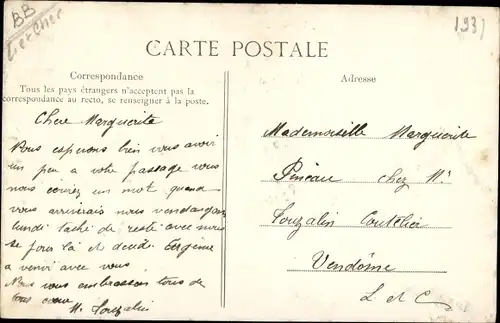 BB
Loir et Cher
1931
CARTE POSTALE
Correspondance
Tous les pays étrangers n'acceptent pas la
correspondance au recto, se renseigner à la poste.
Chere Marguerite
Nous esperons bien vous avoir
un peu a votre passage vous
nous un mot quand
vous arriverais nous vendangons
lundi tache de reste avec nous
se jour là et decide
a venir avec vous
Nous vous embrassons tous de
tous cœur M. Touzalin
Adresse
Mademoiselle Marguerite
Pineau chez Mr
Touzalin Coutelier
Vendôme
L et C